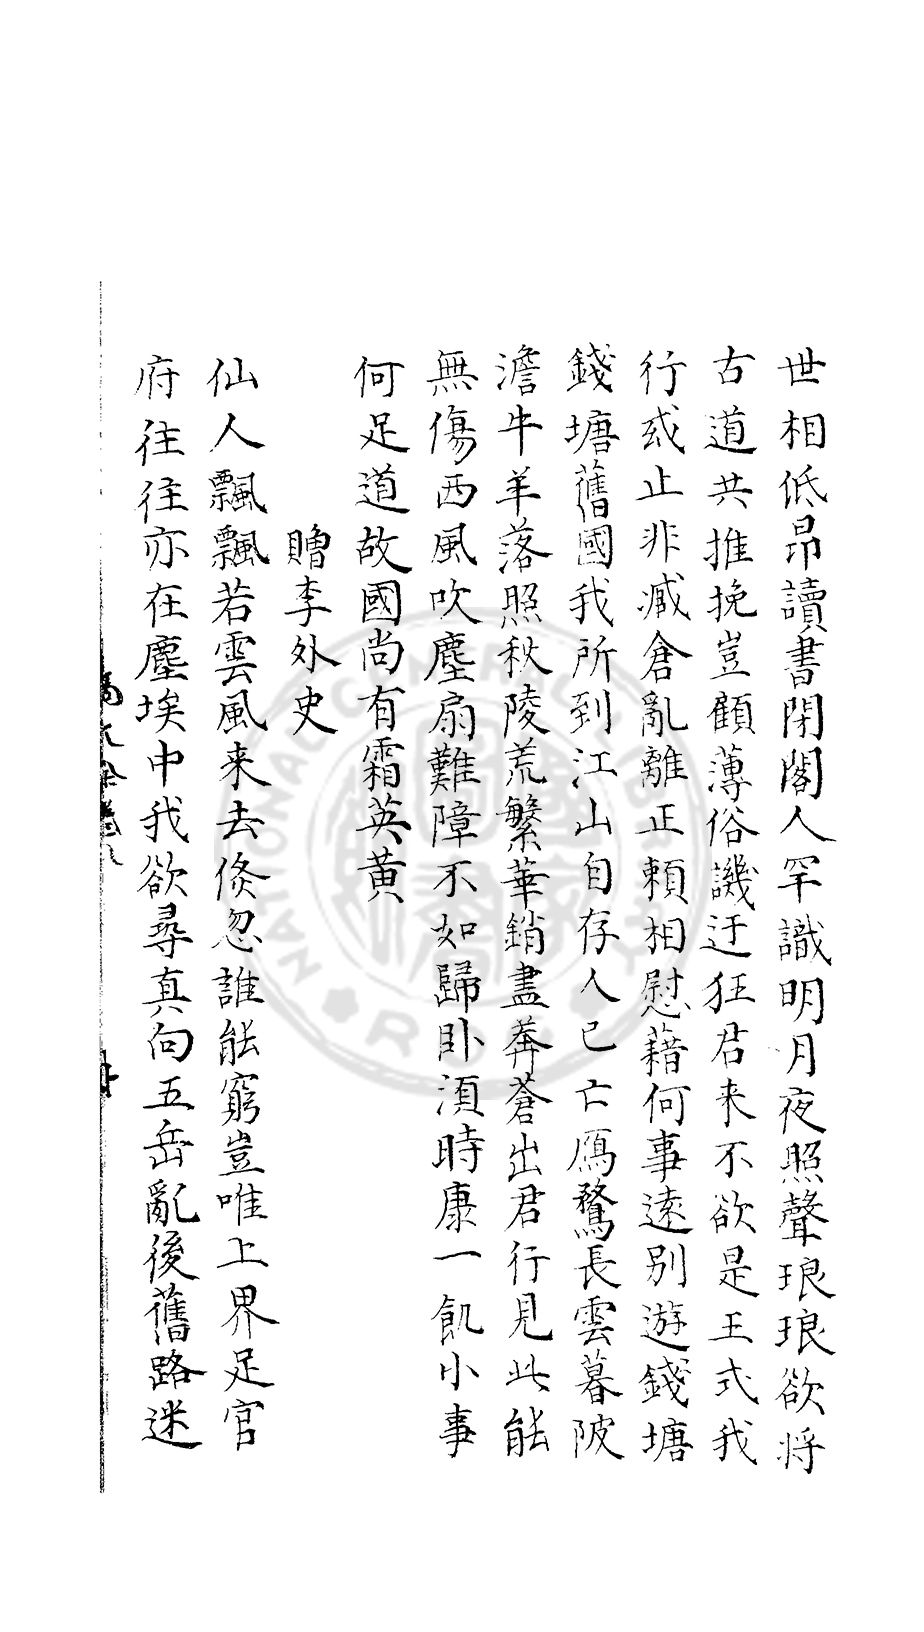 世相低昂讀書閉閣人罕識明月夜照聲琅琅欲將
古道共推挽豈顧薄俗譏迂狂君来不欲是王式我
行或止非臧倉亂離正頼相慰藉何事遠別遊錢塘
錢塘舊國我所到江山自存人已亡鴈鶩長雲暮陂
澹牛羊落照秋陵荒繁華銷盡莽蒼出君行見此能
無傷西風吹塵扇難障不如歸卧湏時康一飢小事
何足道故國尚有霜英黄
贈李外史
仙人飄飄若雲風来去倐忽誰能窮豈唯上界足官
府往往亦在塵埃中我欲尋真向五岳亂後舊路迷
NATIONAL CENTRAL LIBRARY R.O.C.